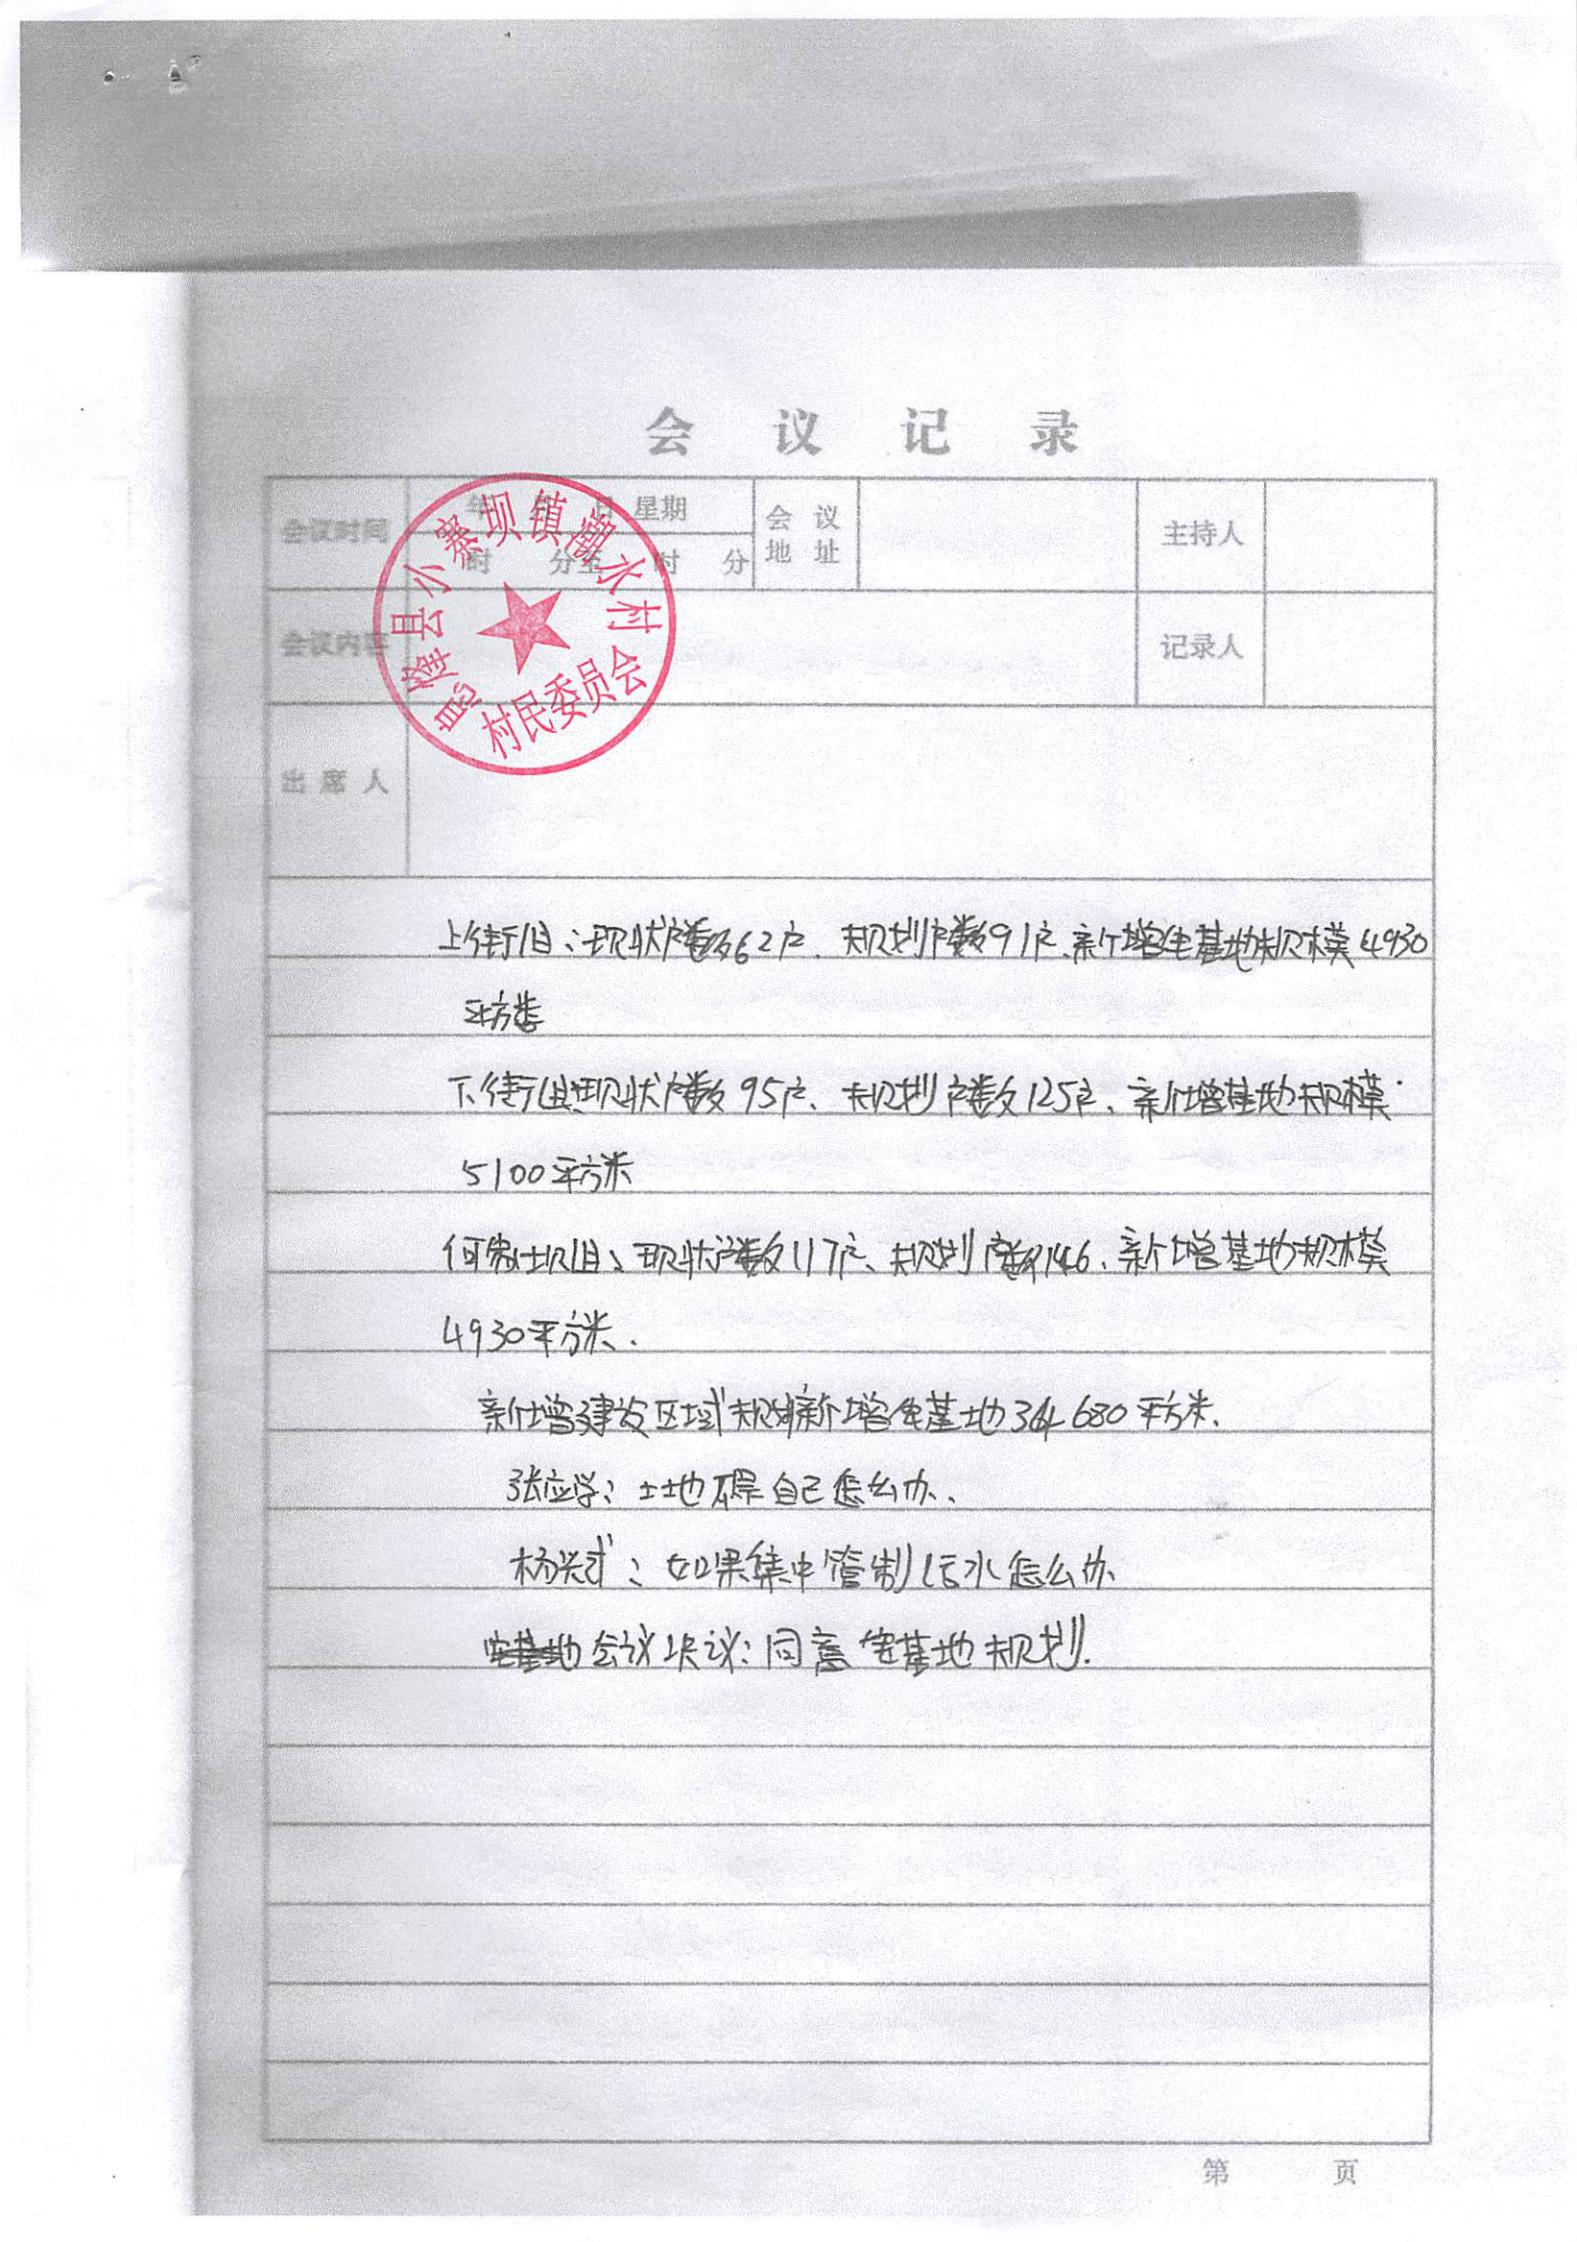 会议记录
会议时间 年 月 日 星期
时 分至 时 分
会议地址
主持人
会议内容
记录人
县小寨坝镇 水村
村民委员会
出席人
上街组:现状户数62户、规划户数91户、新增宅基地规模4930
平方米
下街组:现状户数95户、规划户数125户、新增基地规模
5100平方米
何家坝组:现状户数117户、规划户数146、新增基地规模
4930平方米.
新增建设区域规划新增宅基地 680平方米.
张应学:土地不是自己怎么办、
杨兴才:如果集中管制污水怎么办
会议决议:同意宅基地规划.
第 页